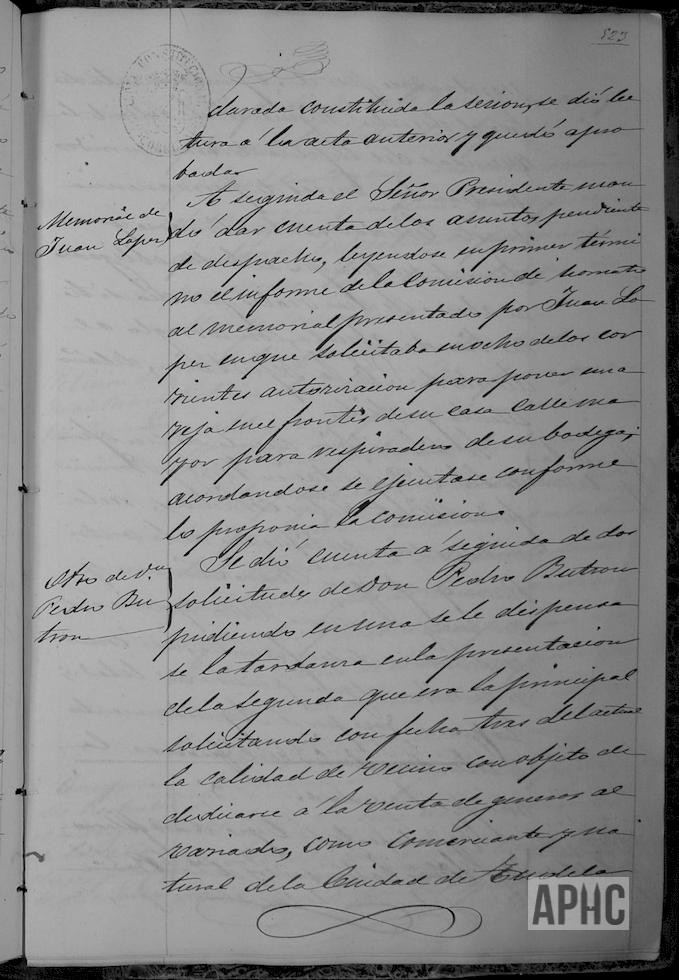 523
clarada constituida la sesion, se dió lec
tura á la acta anterior y quedó apro
bada.
Memorial de
Juan Lopez
A seguida el Señor Presidente man
dó dar cuenta de los asuntos pendientes
de despacho, leyendose en primer térmi
no el informe de la Comision de hornato
al memorial presentado por Juan Lo
pez en que solicitaba en ocho de los cor
rientes autorizacion para poner una
reja en el frontis de su casa Calle ma
yor para respiradero de su bodega;
acordandose se ejecutase conforme
lo proponia la comision.
Otro de Dn
Pedro Bu
tron
Se dió cuenta á seguida de dos
solicitudes de Don Pedro Butron
pidiendo en una se le dispensa
se la tardanza en la presentacion
de la segunda que era la principal
solicitando con fecha tres del actual
la calidad de vecino con objeto de
dedicarse á la venta de generos al
variado, como comerciante y na
tural de la Ciudad de Tudela
APHC